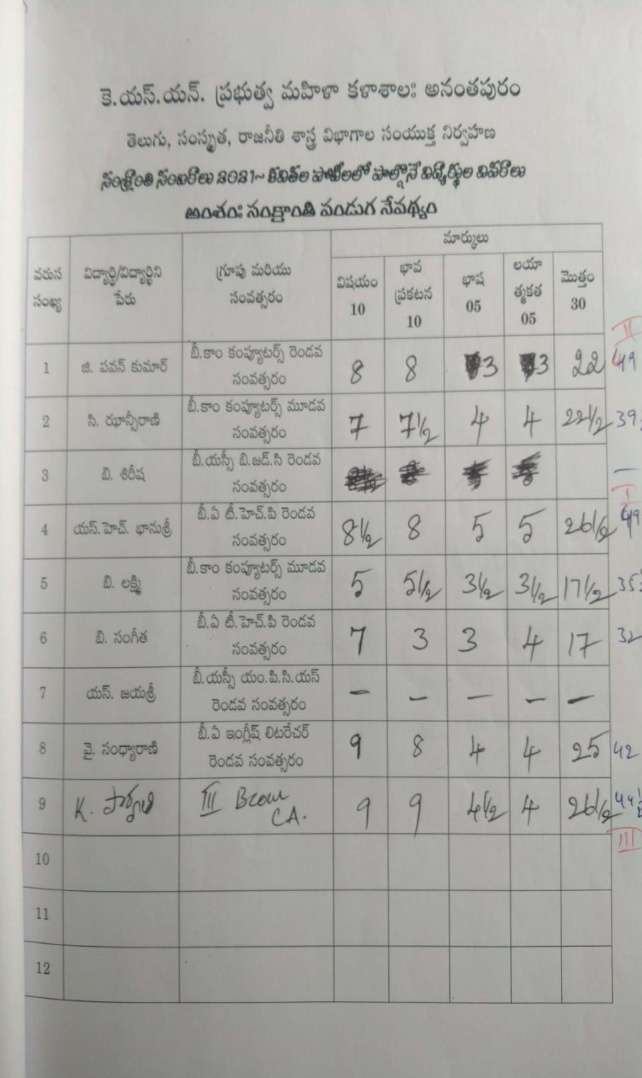 కె.యస్.యన్. ప్రభుత్వ మహిళా కళాశాలః అనంతపురం
తెలుగు, సంస్కృత, రాజనీతి శాస్త్ర విభాగాల సంయుక్త నిర్వహణ
సంక్రాంతి సంబరాలు 2021~ కవితల పోటీలలో పాల్గొనే విద్యార్థుల వివరాలు
అంశం: సంక్రాంతి పండుగ నేపథ్యం
వరుస సంఖ్య విద్యార్థి/విద్యార్థిని పేరు గ్రూపు మరియు సంవత్సరం మార్కులు
విషయం 10 భావ ప్రకటన 10 భాష 05 లయా త్మకత 05 మొత్తం 30
II
1 జి. పవన్ కుమార్ బీ.కాం కంప్యూటర్స్ రెండవ సంవత్సరం 8 8 3 3 22 49
2 సి. ఝాన్సీరాణి బీ.కాం కంప్యూటర్స్ మూడవ సంవత్సరం 7 7½ 4 4 22½ 39
3 బి. శిరీష బీ.యస్సీ బి.జడ్.సి రెండవ సంవత్సరం —
I
4 యస్.హెచ్. భానుశ్రీ బీ.ఏ టీ.హెచ్.పి రెండవ సంవత్సరం 8½ 8 5 5 26½ 49
5 బి. లక్ష్మి బీ.కాం కంప్యూటర్స్ మూడవ సంవత్సరం 5 5½ 3½ 3½ 17½ 35
6 బి. సంగీత బీ.ఏ టీ.హెచ్.పి రెండవ సంవత్సరం 7 3 3 4 17 32
7 యస్. జయశ్రీ బీ.యస్సీ యం.పి.సి.యస్ రెండవ సంవత్సరం — — — — —
8 వై. సంధ్యారాణి బీ.ఏ ఇంగ్లీష్ లిటరేచర్ రెండవ సంవత్సరం 9 8 4 4 25 42
9 K. III Bcom CA. 9 9 4½ 4 26½ 44½
III
10
11
12